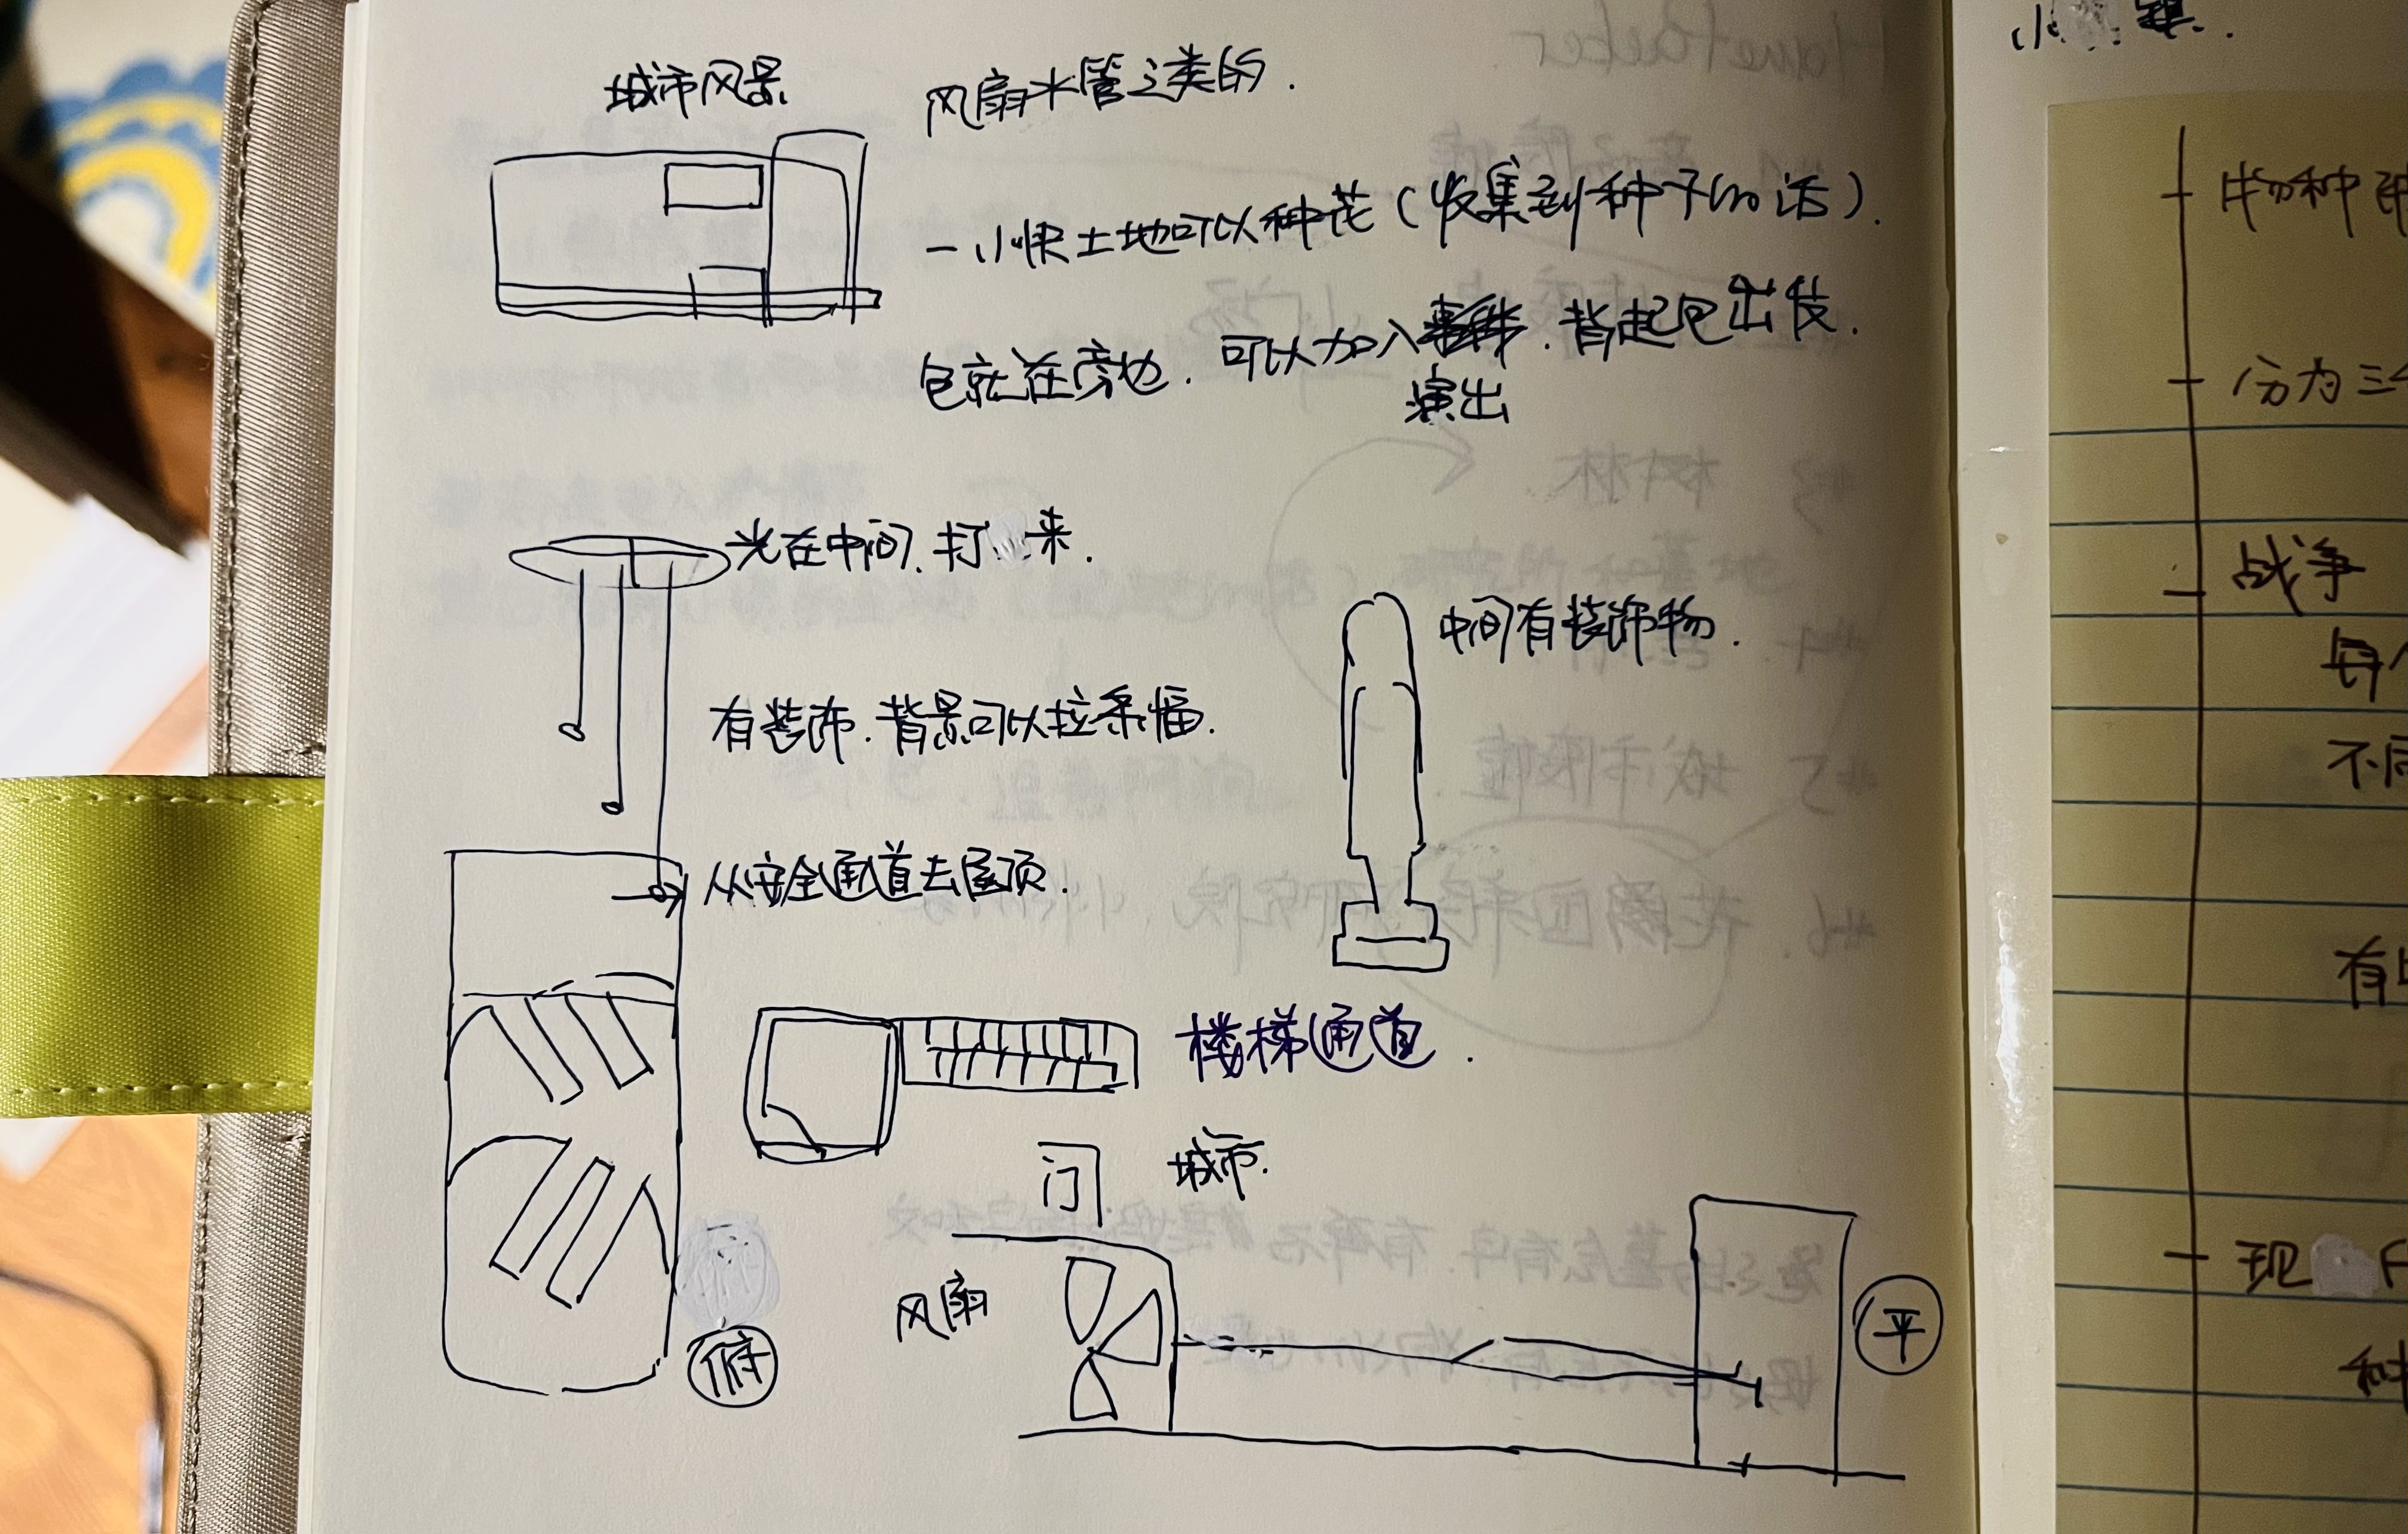 城市风景
风扇水管之类的.
一小快土地可以种花(收集到种子的话).
包就在旁边.可以加入 .背起包出发.
演出
光在中间.打 来.
中间有装饰物.
有装饰.背景可以拉条幅.
从安全通道去屋顶.
楼梯通道.
门
城市.
风扇
俯
平
小 镇.
物种
分为三
战争
每
不同
有
现
种